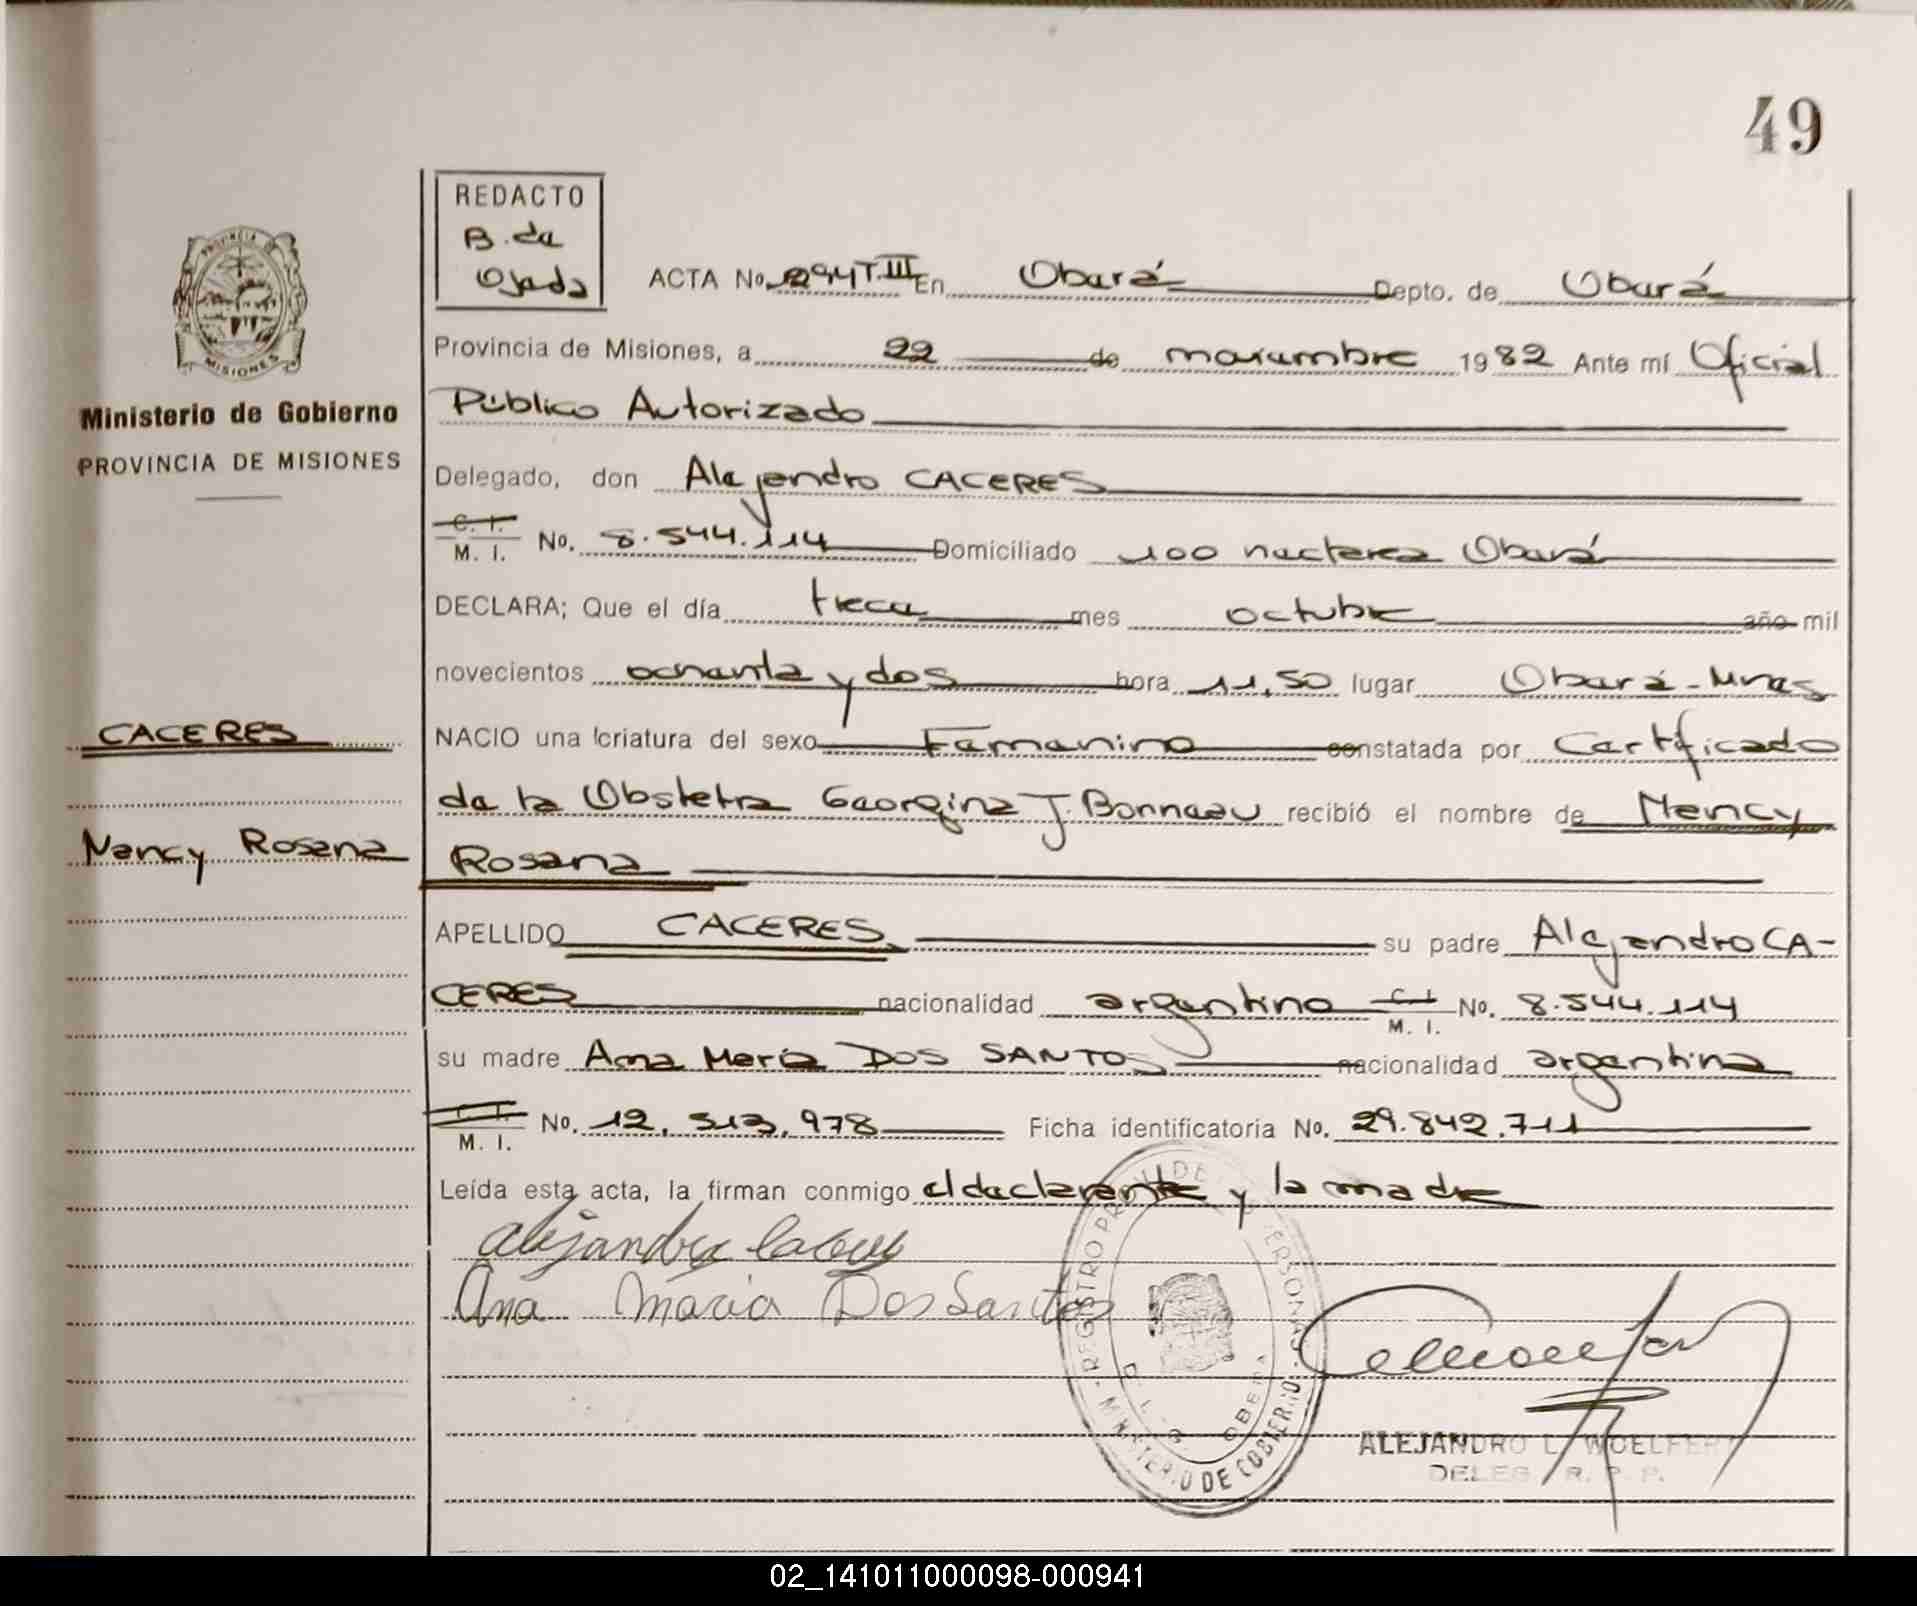 49
REDACTO
B. de
Ojeda
ACTA No. 294 T. III En Oberá Depto. de Oberá
Provincia de Misiones, a 22 de noviembre 1982 Ante mí Oficial
Público Autorizado
Ministerio de Gobierno
PROVINCIA DE MISIONES
Delegado, don Alejandro CACERES
C. I.
M. I. No. 8.544.114 Domiciliado 100 hectarea Oberá
DECLARA; Que el día trece mes octubre año mil
novecientos ochenta y dos hora 11,50 lugar Oberá - Mnes
CACERES
NACIO una criatura del sexo Femenino constatada por Certificado
de la Obstetra Georgina J. Bonneau recibió el nombre de Nancy
Nancy Rosana
Rosana
APELLIDO CACERES su padre Alejandro CA-
CERES nacionalidad argentino C. I. M. I. No. 8.544.114
su madre Ana María DOS SANTOS nacionalidad argentina
C. I.
M. I. No. 12.513.978 Ficha identificatoria No. 29.842.711
Leída esta acta, la firman conmigo el declarante y la madre
Alejandro Caceres
Ana Maria Dos Santos
ALEJANDRO L. WOELFERT
DELEG. R. P. P.
MINISTERIO DE GOBIERNO
OBERA
02_141011000098-000941